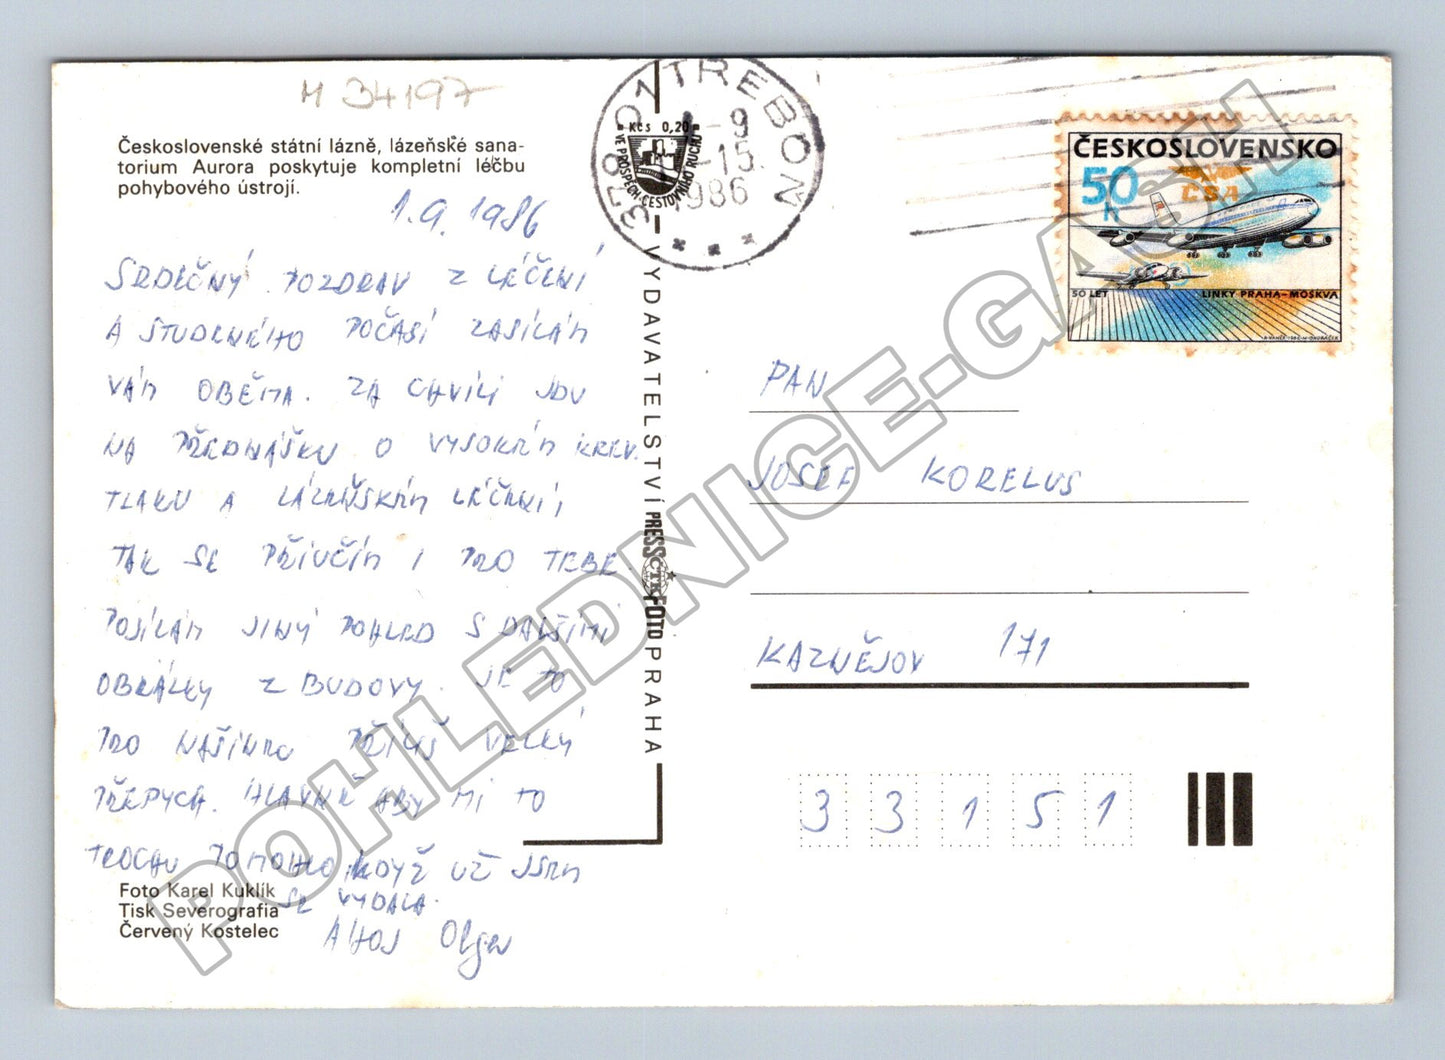 M 34197
Československé státní lázně, lázeňské sana-
torium Aurora poskytuje kompletní léčbu
pohybového ústrojí.
1.9.1986
SRDEČNÝ POZDRAV Z LÉČENÍ
A STUDENÉHO POČASÍ ZASÍLÁM
VÁM OBĚMA. ZA CHVÍLI JDU
NA PŘEDNÁŠKU O VYSOKÉM KREV.
TLAKU A LÁZEŇSKÉM LÉČENÍ,
TAK SE PŘIUČÍM I PRO TEBE.
POSÍLÁM JINÝ POHLED S DALŠÍMI
OBRÁZKY Z BUDOVY. JE TO
PRO NAŠINCE PŘÍLIŠ VELKÝ
PŘEPYCH. HLAVNĚ ABY MI TO
TROCHU POMOHLO, KDYŽ UŽ JSEM
SE VYDALA.
AHOJ Olga
Foto Karel Kuklík
Tisk Severografia
Červený Kostelec
VYDAVATELSTVÍ PRESSFOTO PRAHA
ČTK
379 01 TŘEBOŇ
-9
-15
1986
Kčs 0,20
VE PROSPĚCH CESTOVNÍHO RUCHU
ČESKOSLOVENSKO
50 h
ČSA
50 LET LINKY PRAHA-MOSKVA
PAN
JOSEF KORELUS
KAZNĚJOV 171
3 3 1 5 1
POHLEDNICE-GASH